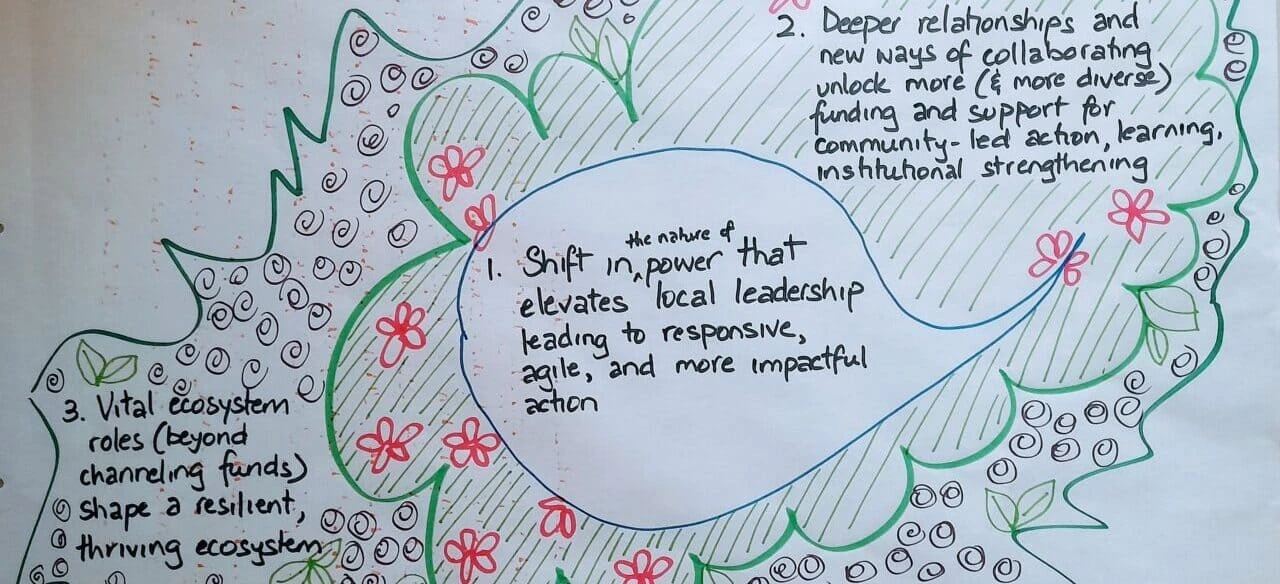 2. Deeper relationships and
new ways of collaborating
unlock more (& more diverse)
funding and support for
community-led action, learning,
institutional strengthening
1. Shift in ^ the nature of power that
elevates local leadership
leading to responsive,
agile, and more impactful
action
3. Vital ecosystem
roles (beyond
channeling funds)
shape a resilient,
thriving ecosystem